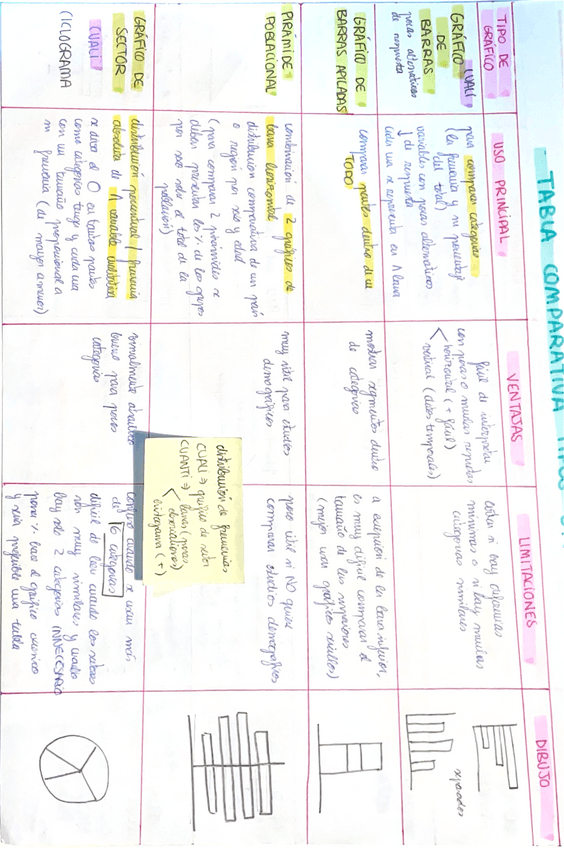 TABLA COMPARATIVA TIPOS
TIPO DE
GRÁFICO
USO PRINCIPAL
VENTAJAS
LIMITACIONES
DIBUJO
GRÁFICO CUALI
DE
BARRAS
pocas alternativas
de respuesta
para comparar categorías
(la frecuencia y su porcentaje
del total)
variables con pocas alternativas
de respuesta
cada una se representa en 1 barra
fácil de interpretar
con pocas o muchas
horizontal (+ fácil)
vertical (datos temporales)
si hay diferencias
mínimas o si hay muchas
categorías similares
separados
GRÁFICO DE
BARRAS APILADAS
comparar partes dentro de un
TODO
mostrar segmentos dentro
de categorías
a excepción de la barra inferior,
es muy difícil comparar el
tamaño de las superiores
(mejor usar gráficos sencillos)
PIRÁMIDE
POBLACIONAL
combinación de 2 gráficos de
barra horizontal
distribución comparativa de un país
o región por sexo y edad
(para comparar 2 pirámides se
deben presentar los % de los grupos
por sexo sobre el total de la
población)
muy útil para estudios
demográficos
poco útil si NO quiere
comparar estudios demográficos
GRÁFICO DE
SECTOR
CUALI
CICLOGRAMA
distribución porcentual / frecuencia
absoluta de 1 variable cualitativa
se divide el O en tantas partes
como categorías tenga y cada una
con un tamaño proporcional a
su frecuencia (de mayor a menor)
visualmente atractivo
bueno para pocas
categorías
confuso cuando se usan más
de 6 categorías
difícil de leer cuando los sectores
son muy similares y cuando
hay solo 2 categorías INNECESARIO
y sería preferible una tabla
distribución de frecuencias
CUALI → gráfico de sector
CUANTI →
barras (pocas
observaciones)
histograma (+)